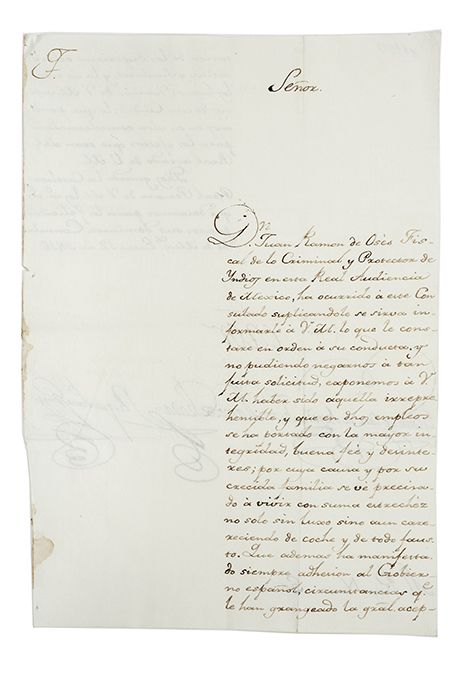 F.
Señor.
Dn
Juan Ramon de Osés Fis-
cal de lo Criminal y Protector de
Yndios en esta Real Audiencia
de Mexico, ha ocurrido à este Con
sulado suplicandole se sirva in-
formarle à V. M. lo que le cons-
tare en orden à su conducta, y
no pudiendo negarnos à tan
justa solicitud, exponemos à V.
M. haber sido aquella irrepre
henible, y que en dhos empleos
se ha portado con la mayor in
tegridad, buena feé y desinte-
res; por cuya causa y por su
crecida familia se vé precisa-
do à vivir con suma estrechez
no solo sin luxo sino aun care-
reciendo de coche y de todo faus-
to. Que ademas ha manifesta
do siempre adhesion al Gobier-
no español, circunstancias q.e
le han grangeado la gral. acep-